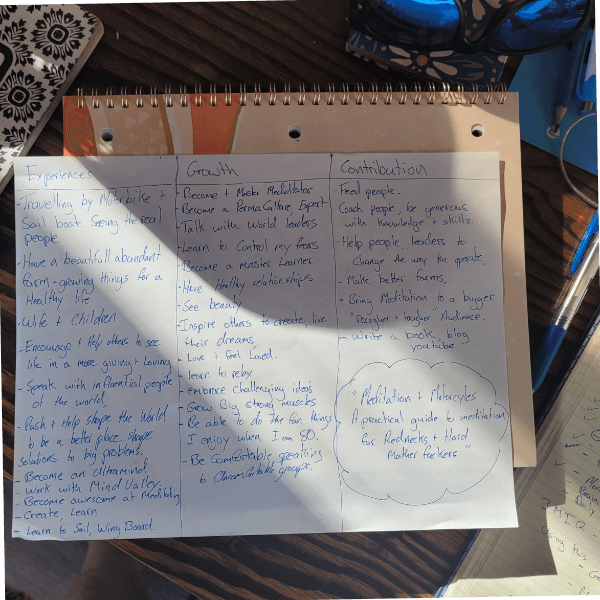 Experiences
- Travelling by Motorbike +
Sail boat Seeing the real
people
- Have a beautifull abundant
farm - growing things for a
Healthy life
- Wife + Children
- Encourage + Help others to see
life in a more giving + Loving
- Speak with influential people
of the world,
- Push + Help shape the World
to be a better place. shape
solutions to big problems.
- Become an Ultramind,
- Work with Mind Valley,
- Become awesome at Meditating
- Create, Learn
- Learn to Sail, Wing Board.
Growth
- Become + Master Meditator
- Become a PermaCulture, Expert
- Talk with World leaders
- Learn to Control my fears
- Become a master Learner
- Have Healthy relationships
- See beauty
- Inspire others to create, live
their dreams
- Love + feel Loved.
- learn to relax
- Embrace Challenging ideas
- Grow Big strong muscles
- Be able to do the fun things
I enjoy when I am 80.
- Be Comfortable speaking
to
Contribution
Feed people.
Coach people, be generous
with Knowledge + skillz.
- Help people, leaders to
Change the way the operate,
- Make better farms,
- Bring Meditation to a bigger
+ tougher Audience.
- Write a book, blog
youtube
"Meditation + Motorcycles
A practical guide to meditation
for Rednecks + Hard
Mother fockers"
? M I Q
Using this